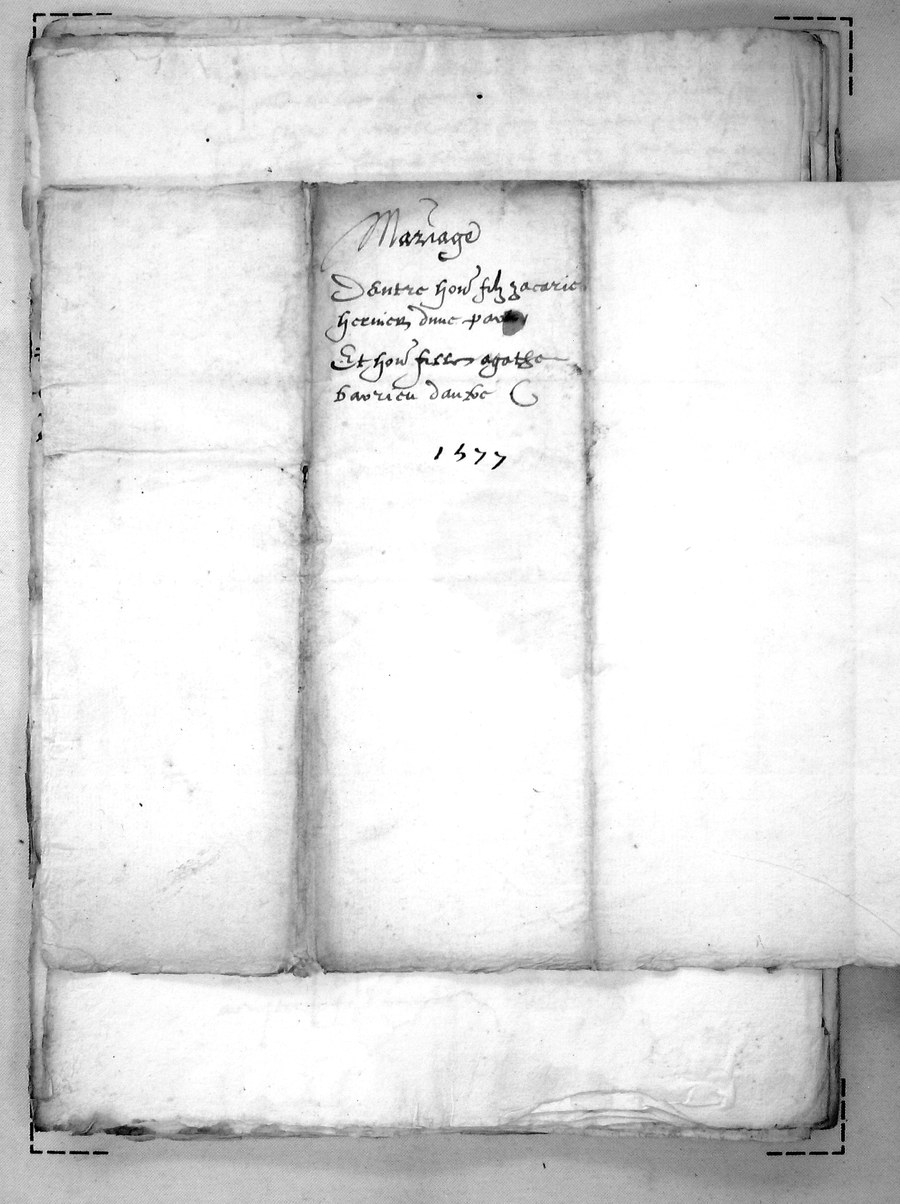 Mariage
Dentre hon filz zacarie
hernier dune part
Et hon fille agathe
baorieu dautre
1577